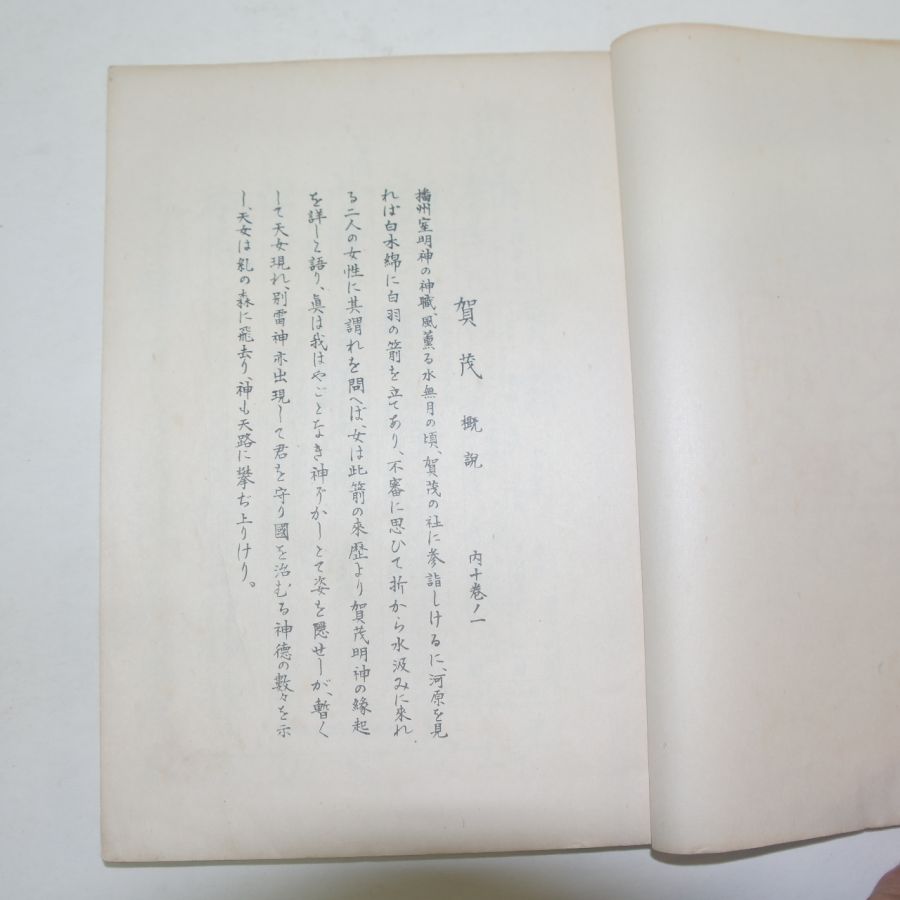 賀茂 概說 內十卷ノ一
播州室明神の神職、風薰る水無月の頃、賀茂の社に參詣しけるに、河原を見
れば白木綿に白羽の箭を立てあり、不審に思ひて折から水汲みに來れ
る二人の女性に其謂れを問へば、女は此箭の來歷より賀茂明神の緣起
を詳しく語り、眞は我はやごとなき神ぞかしとて姿を隱せしが、暫く
して天女現れ、別雷神亦出現して君を守り國を治むる神德の數々を示
し、天女は糺の森に飛去り、神も天路に攀ぢ上りけり。